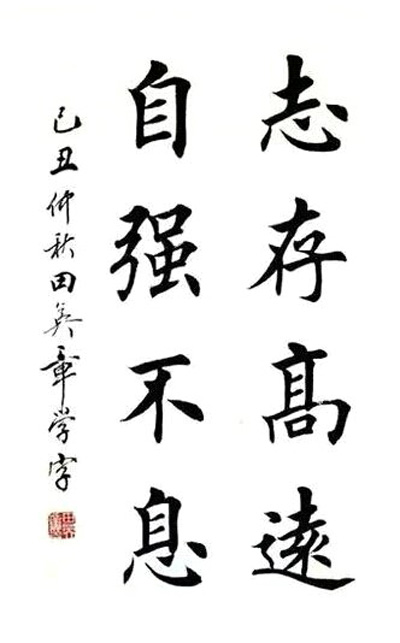 志存髙遠
自强不息
己丑仲秋田英章学字